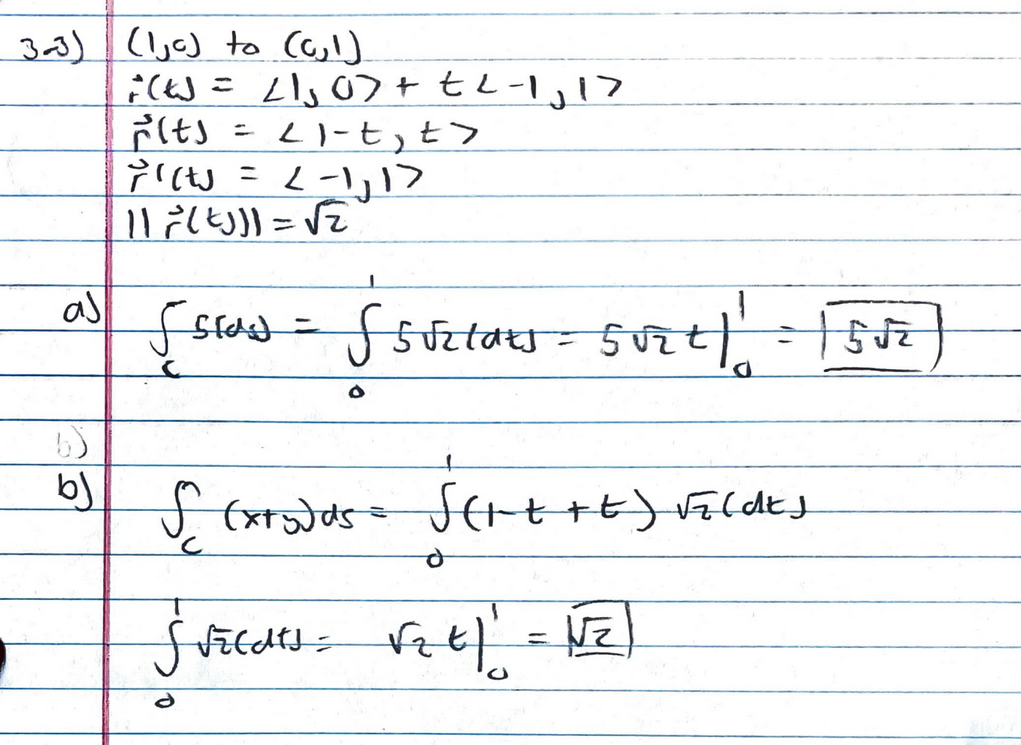 3.3) (1,0) to (0,1)
r⃗(t) = <1, 0> + t <-1, 1>
r⃗(t) = <1-t, t>
r⃗'(t) = <-1, 1>
||r⃗(t)|| = √2
a) ∫_C 5(ds) = ∫_0^1 5√2(dt) = 5√2 t|_0^1 = 5√2
b)
b) ∫_C (x+y)ds = ∫_0^1 (1-t+t) √2(dt)
∫_0^1 √2(dt) = √2 t|_0^1 = √2